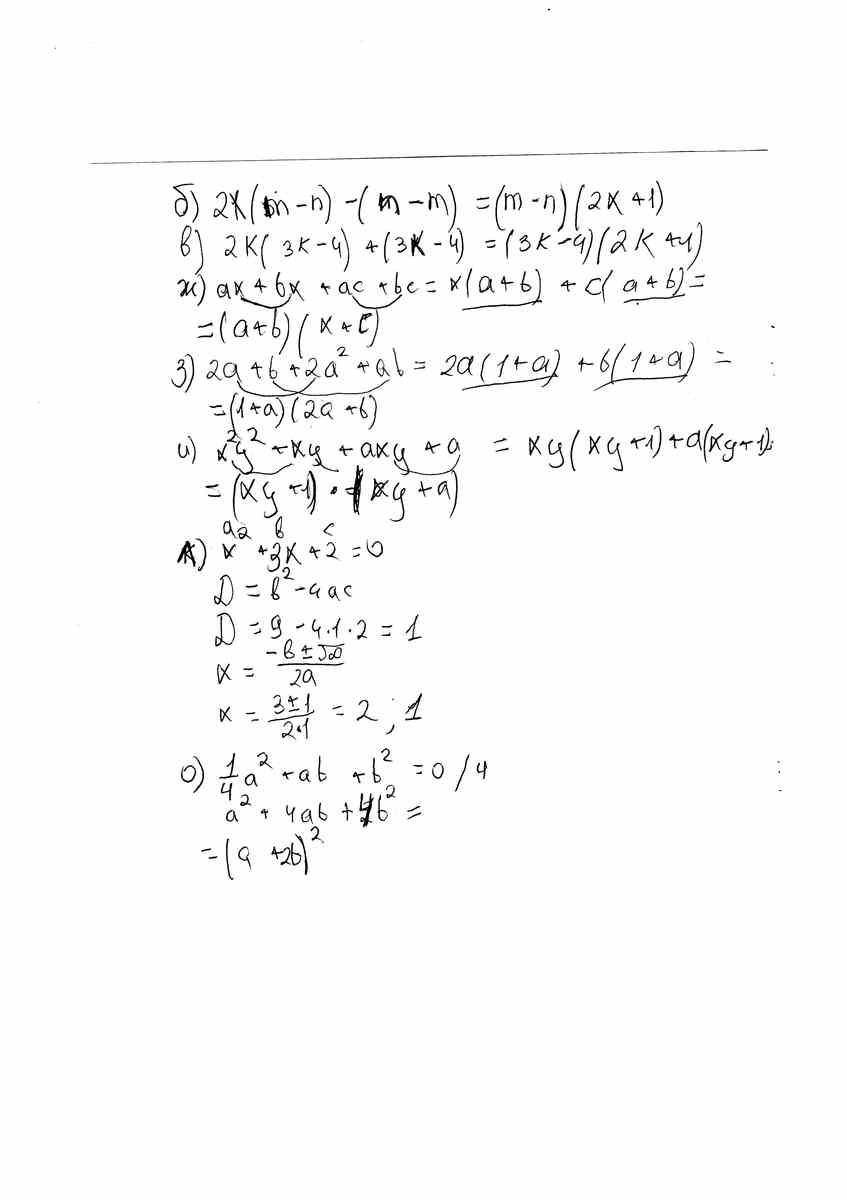 б) 2x(m-n) -(n-m) =(m-n)(2x+1)
в) 2K(3K-4) +(3K-4) =(3K-4)(2K+1)
ж) ax+bx+ac+bc= x(a+b) + c(a+b)=
=(a+b)(x+c)
з) 2a+b+2a²+ab= 2a(1+a) +b(1+a) =
=(1+a)(2a+b)
и) x²y²+xy+axy+a = xy(xy+1)+a(xy+1)=
=(xy+1)·(xy+a)
a b c
к) x²+3x+2=0
D=b²-4ac
D=9-4·1·2=1
x= -b±√D / 2a
x= 3±1 / 2·1 = 2 ; 1
о) 1/4 a²+ab+b²=0 /4
a²+4ab+4b²=
=(a+2b)²